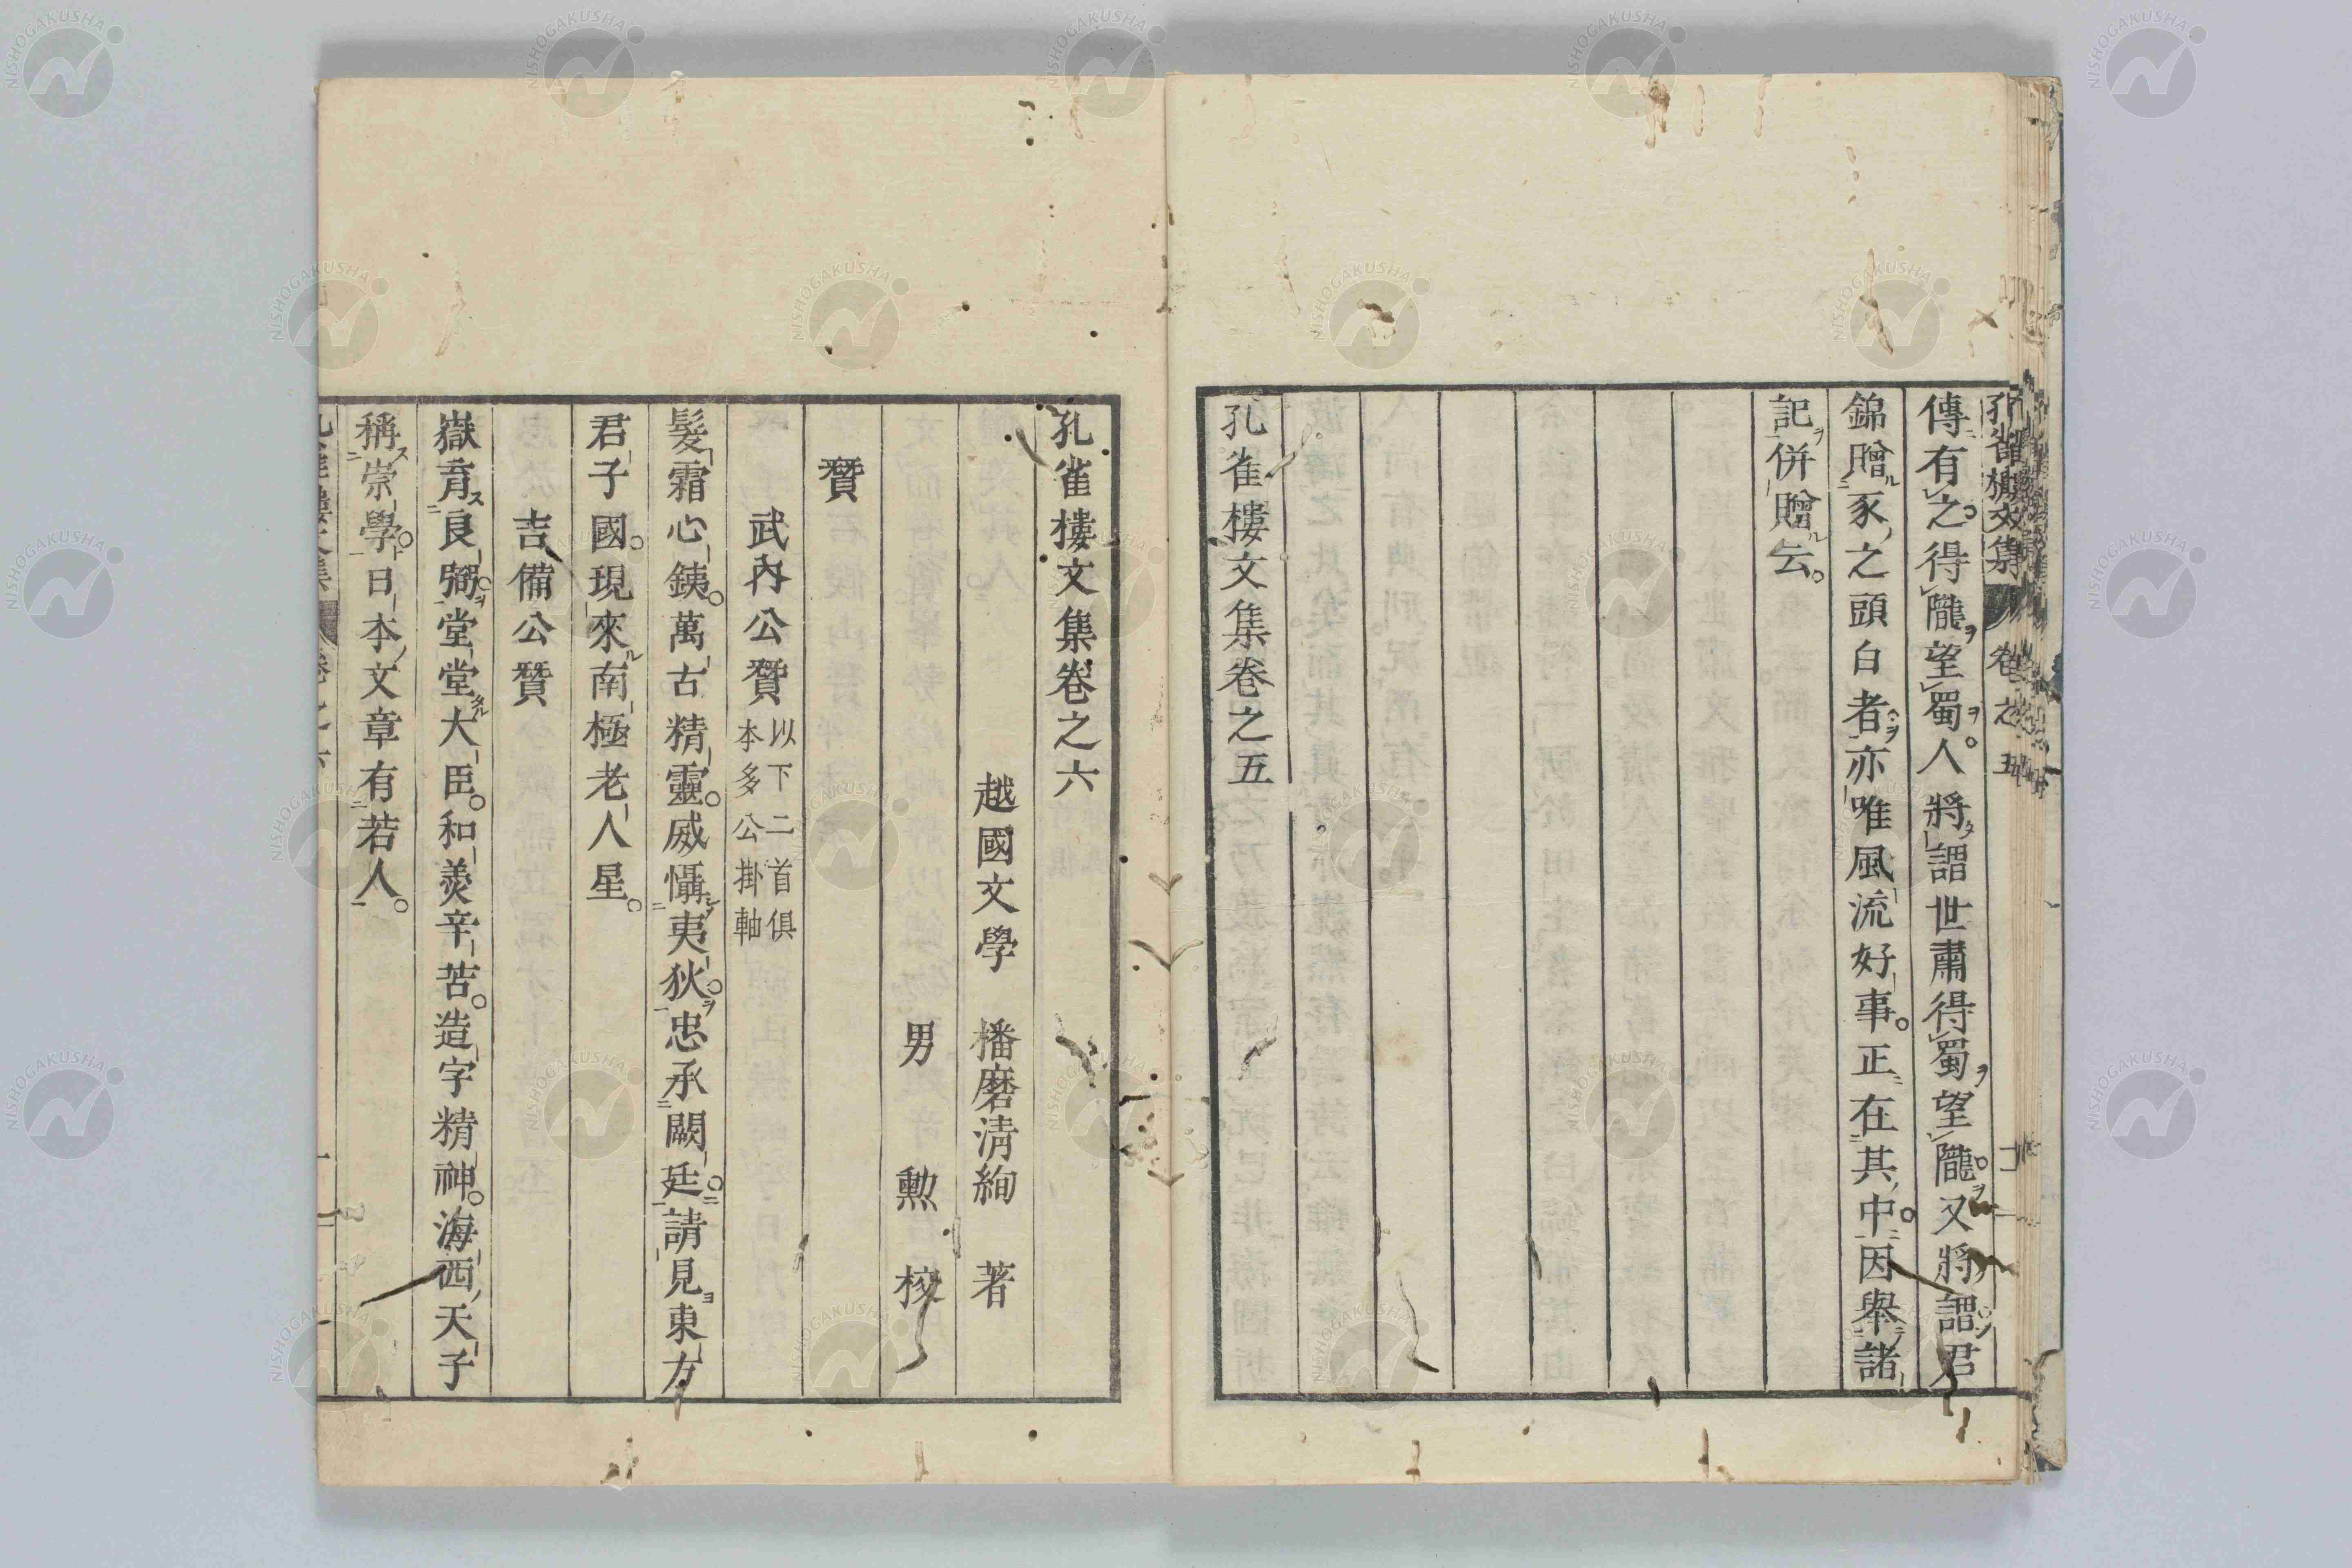 孔雀樓文集 卷之五
傳有之。得隴望蜀。人將謂世肅得蜀望隴。又將謂君
錦贈豕之頭白者。亦唯風流好事。正在其中。因舉諸
記併贈云。
孔雀樓文集卷之五
孔雀樓文集卷之六
越國文學 播磨淸絢 著
男 勲 校
贊
武內公贊 以下二首俱
本多公掛軸
髮霜心銕。萬古精靈。威懾夷狄。忠承闕廷。請見東方
君子國。現來南極老人星。
吉備公贊
嶽育良弼。堂堂大臣。和羹辛苦。造字精神。海西天子
稱崇學。日本文章有若人。
NISHOGAKUSHA